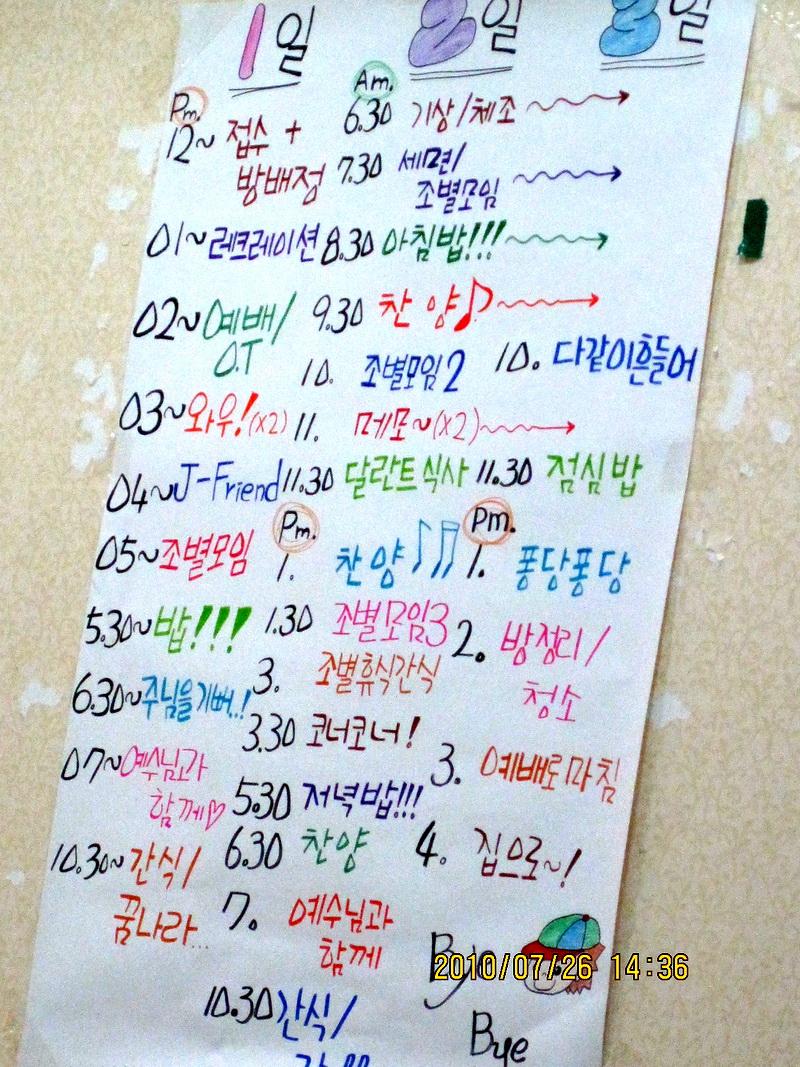 1일
Pm.
12~ 접수 +
방배정
01~레크레이션
02~예배/
O.T
03~와우!(x2)
04~J-Friend
05~조별모임
5.30~밥!!!
6.30~주님을기뻐..!
07~예수님과
함께♡
10.30~간식/
꿈나라...
2일
Am.
6.30 기상/체조
7.30 세면/
조별모임
8.30 아침밥!!!
9.30 찬양♪
10. 조별모임2
11. 메모~(x2)
11.30 달란트식사
Pm.
1. 찬양♪♬
1.30 조별모임3
3. 조별휴식간식
3.30 코너코너!
5.30 저녁밥!!!
6.30 찬양
7. 예수님과
함께
10.30간식/
3일
10. 다같이흔들어
11.30 점심밥
Pm.
1. 퐁당퐁당
2. 방정리/
청소
3. 예배로마침
4. 집으로~!
Bye
Bye
2010/07/26 14:36